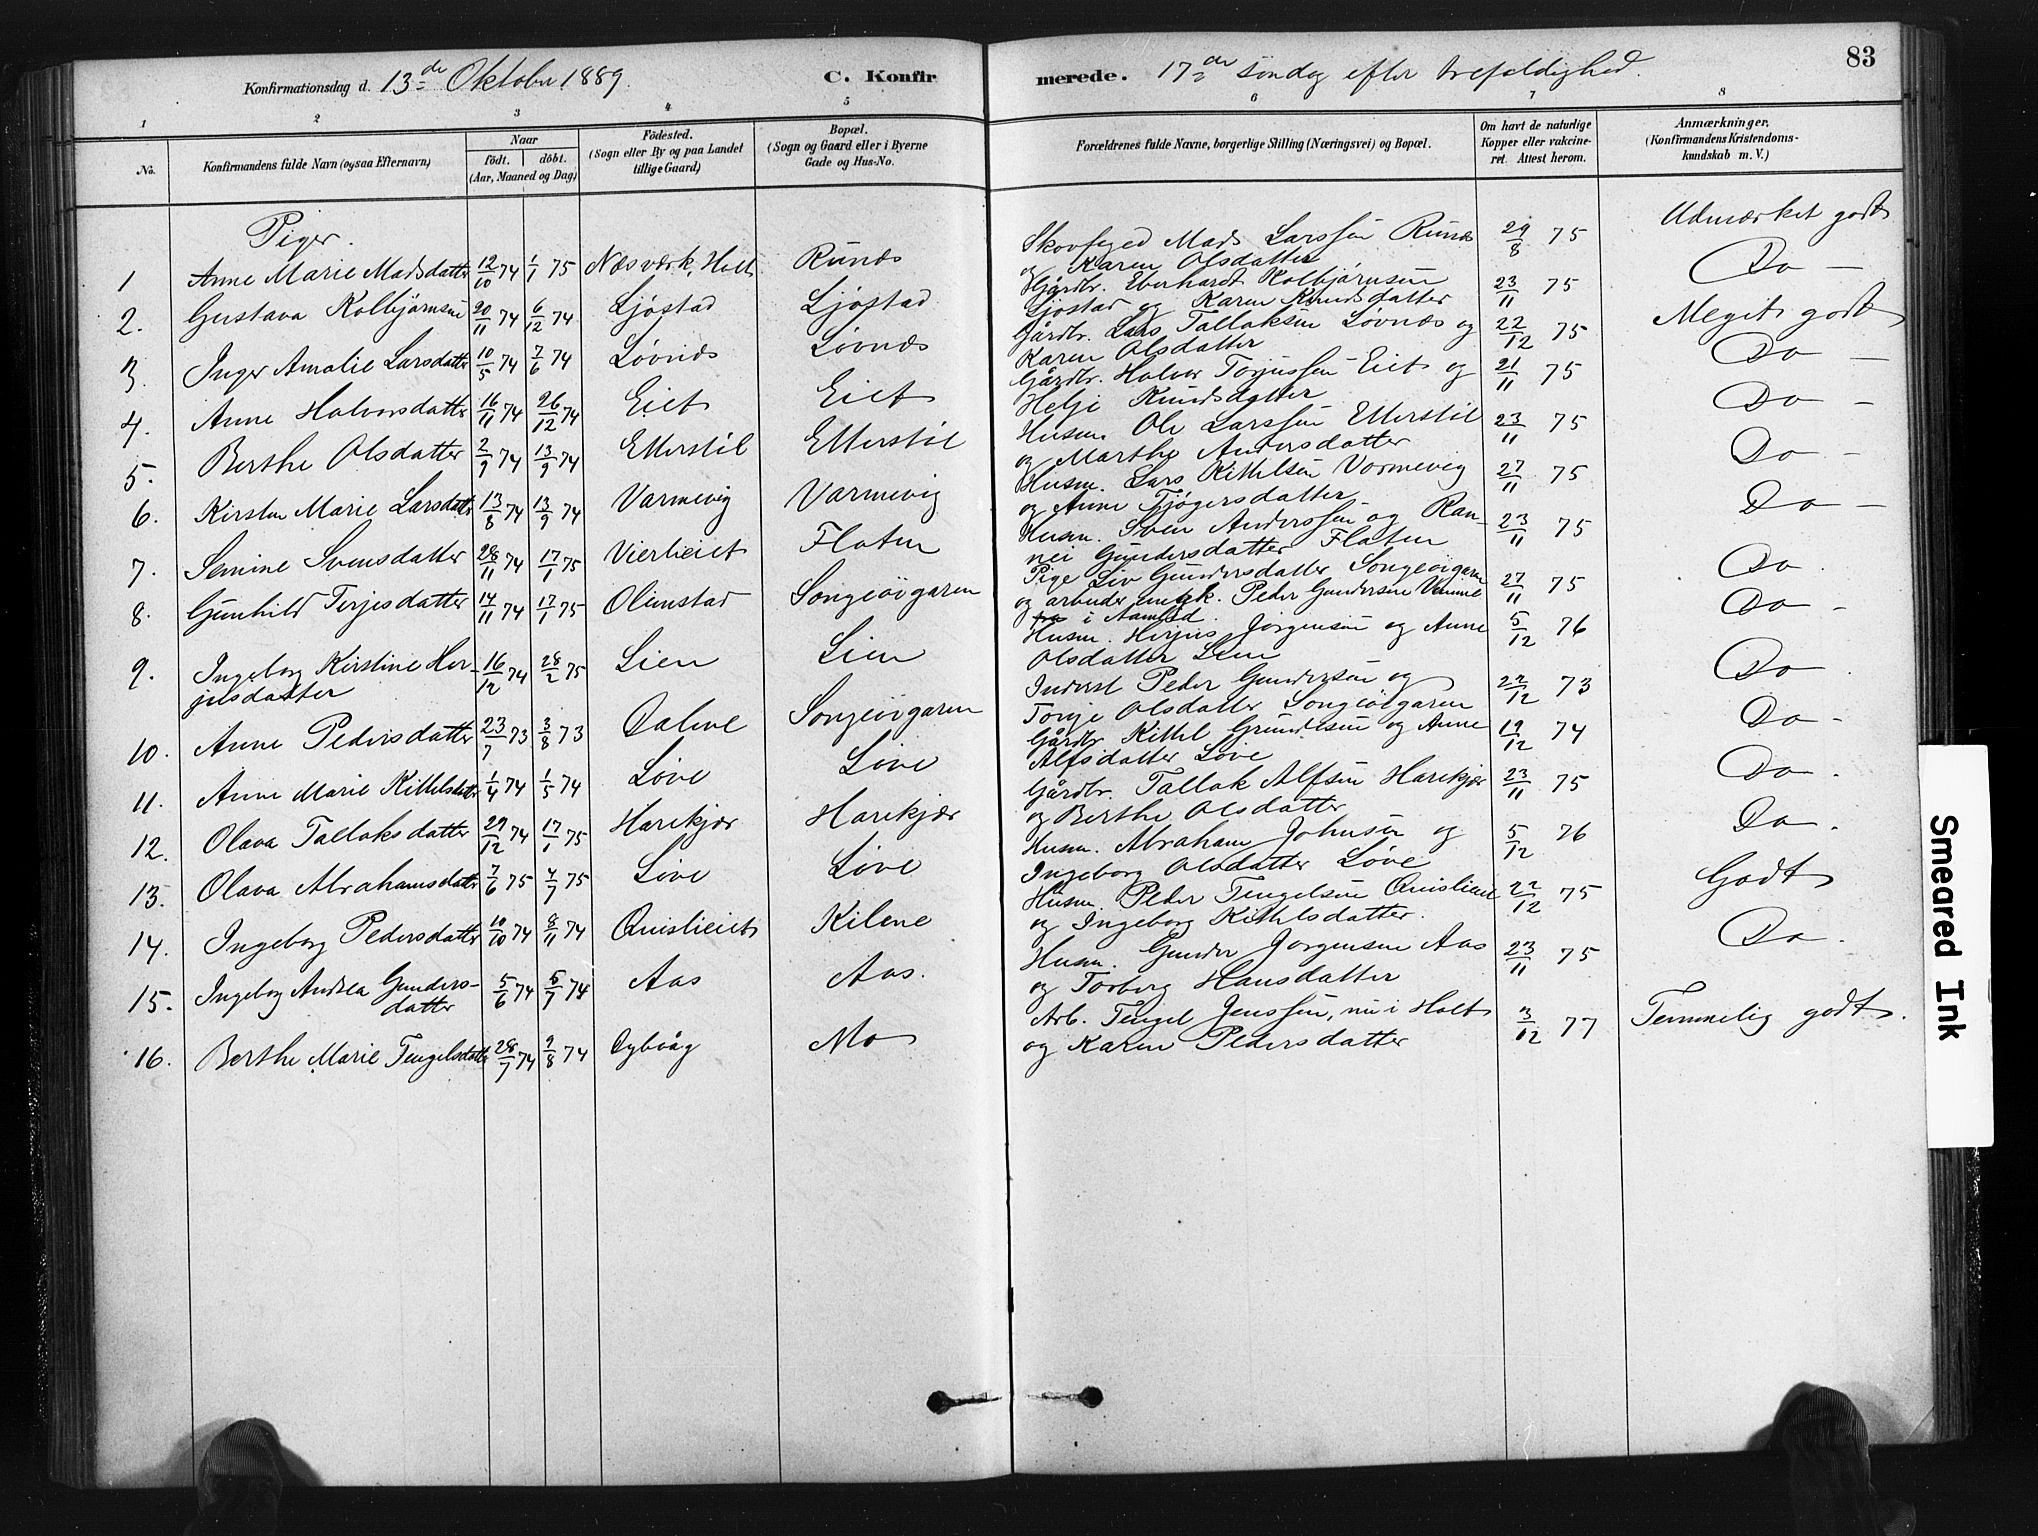 Konfirmationsdag d. 13de Oktober 1889. C. Konfirmerede. 17de søndag efter trefoldighed. 83
1 2 3 4 5 6 7 8
No. Konfirmandens fulde Navn (ogsaa Efternavn) Naar födt. döbt. (Aar, Maaned og Dag) Födested. (Sogn eller By og paa Landet tillige Gaard) Bopæl. (Sogn og Gaard eller i Byerne Gade og Hus-No. Forældrenes fulde Navne, borgerlige Stilling (Næringsvei) og Bopæl. Om havt de naturlige Kopper eller vakcineret. Attest herom. Anmærkninger. (Konfirmandens Kristendomskundskab m. V.)
Piger.
1 Anne Marie Madsdatter 12/10 74 1/1 75 Næsværk, Holt Runæs Skovfoged Mads Larssen Runæs og Karen Olsdatter 29/8 75 Udmærket godt
2. Gustava Kolbjørnsen 20/11 74 6/12 74 Ljøstad Ljøstad Gårdbr. Eberhardt Kolbjørnsen Ljøstad og Karen Knudsdatter 23/11 75 Do —
3. Inger Amalie Larsdatter 10/5 74 7/6 74 Løvnæs Løvnæs Gårdbr. Lars Tallaksen Løvnæs og Karen Olsdatter 22/12 75 Meget godt
4. Anne Halvorsdatter 16/11 74 26/12 74 Eiet Eiet Gårdbr. Halvor Torjussen Eiet og Helje Knudsdatter 21/11 75 Do —
5. Berthe Olsdatter 2/9 74 13/9 74 Etterstøl Etterstøl Husm. Ole Larssen Etterstøl og Marthe Andersdatter 23/11 75 Do —
6. Kirsten Marie Larsdatter 13/8 74 13/9 74 Varmevig Varmevig Husm. Lars Kittelsen Vormevig og Anne Tjøgersdatter 27/11 75 Do —
7. Semine Svensdatter 28/11 74 17/1 75 Vierlieiet Flaten Husm. Sven Anderssen og Rannei Gundersdatter Flaten 23/11 75 Do —
8. Gunhild Terjesdatter 14/11 74 17/1 75 Olimstad Songeøigaren Pige Liv Gundersdatter Songeøigaren og arbeider enek. Peder Gundersen i Aamlid 27/11 75 Do.
9. Ingeborg Kirstine Herjusdatter 16/12 74 28/2 75 Lien Lien Husm. Herjus Jørgensen og Anne Olsdatter Lien 5/12 76 Do —
10. Anne Pedersdatter 23/7 73 3/8 73 Dalene Songeøigaren Inderst Peder Gundersen og Tonje Olsdatter Songeøigaren 22/12 73 Do.
11. Anne Marie Kittelsdatter 1/4 74 1/5 74 Løve Løve Gårdbr. Kittel Gundersen og Anne Alfsdatter Løve 19/12 74 Do —
12. Olava Tallaksdatter 29/12 74 17/1 75 Harekjær Harekjær Gårdbr. Tallak Alfsen Harekjær og Berthe Olsdatter 23/11 75 Do.
13. Olava Abrahamsdatter 7/6 75 4/7 75 Løve Løve Husm. Abraham Johnsen og Ingeborg Olsdatter Løve 5/12 76 Do.
14. Ingeborg Pedersdatter 10/10 74 8/11 74 Qvislieiet Kilene Husm. Peder Tengelsen Qvislieiet og Ingeborg Kittelsdatter. 22/12 75 Godt
15. Ingeborg Andrea Gundersdatter 5/6 74 5/7 74 Aas Aas. Husm. Gunder Jørgensen Aas og Torberg Hansdatter 23/11 75 Do.
16. Berthe Marie Tengelsdatter 28/7 74 9/8 74 Dybvåg Mo Arb. Tengel Jenssen, nu i Holt og Karen Pedersdatter 3/12 77 Temmelig godt.
Smeared Ink